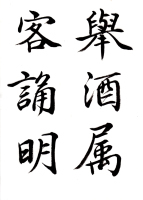 舉酒属
客誦明